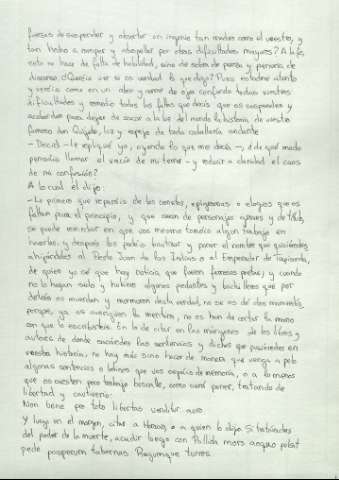 fuerzas de suspender y absortar un ingenio tan maduro como el vuestro, y
tan hecho a romper y atropellar por otras dificultades mayores? A la fe,
esto no nace de falta de habilidad, sino de sobra de pereza y penuria de
discurso. ¿Queréis ver si es verdad lo que digo? Pues estadme atento
y veréis como en un abrir y cerrar de ojos confundo todas vuestras
dificultades y remedio todas las faltas que decís que os suspenden y
acobardan para dejar de sacar a la luz del mundo la historia de vuestro
famoso don Quijote, luz y espejo de toda caballería andante.
- Decid - le repliqué yo, oyendo lo que me decía -, ¿de qué modo
pensáis llenar el vacío de mi temor y reducir a claridad el caos
de mi confusión?
A lo cual él dijo:
- Lo primero que reparáis de los sonetos, epigramas o elogios que os
faltan para el principio, y que sean de personajes graves y de título,
se puede remediar en que vos mesmo toméis algún trabajo en
hacerlos, y después los podéis bautizar y poner el nombre que quisiéredes
ahijándolos al Preste Juan de las Indias o al Emperador de Trapisonda,
de quien yo sé que hay noticia que fueron famosos poetas; y cuando
no lo hayan sido y hubiere algunos pedantes y bachilleres que por
detrás os muerdan y murmuren desta verdad, no se os dé dos maravedís,
porque, ya os averigüen la mentira, no os han de cortar la mano
con que lo escribistes. En lo de citar en las márgenes de los libros y
autores de donde sacáredes las sentencias y dichos que pusiéredes en
vuestra historia, no hay más sino hacer de manera que venga a pelo
algunas sentencias o latines que vos sepáis de memoria, o a lo menos
que os cuesten poco trabajo buscalle, como será poner, tratando de
libertad y cautiverio:
Non bene pro toto libertas venditur auro
Y luego en el margen, citar a Horacio, o a quien lo dijo. Si tratáredes
del poder de la muerte, acudir luego con Pallida mors aequo pulsat
pede pauperum tabernas Regumque turres.